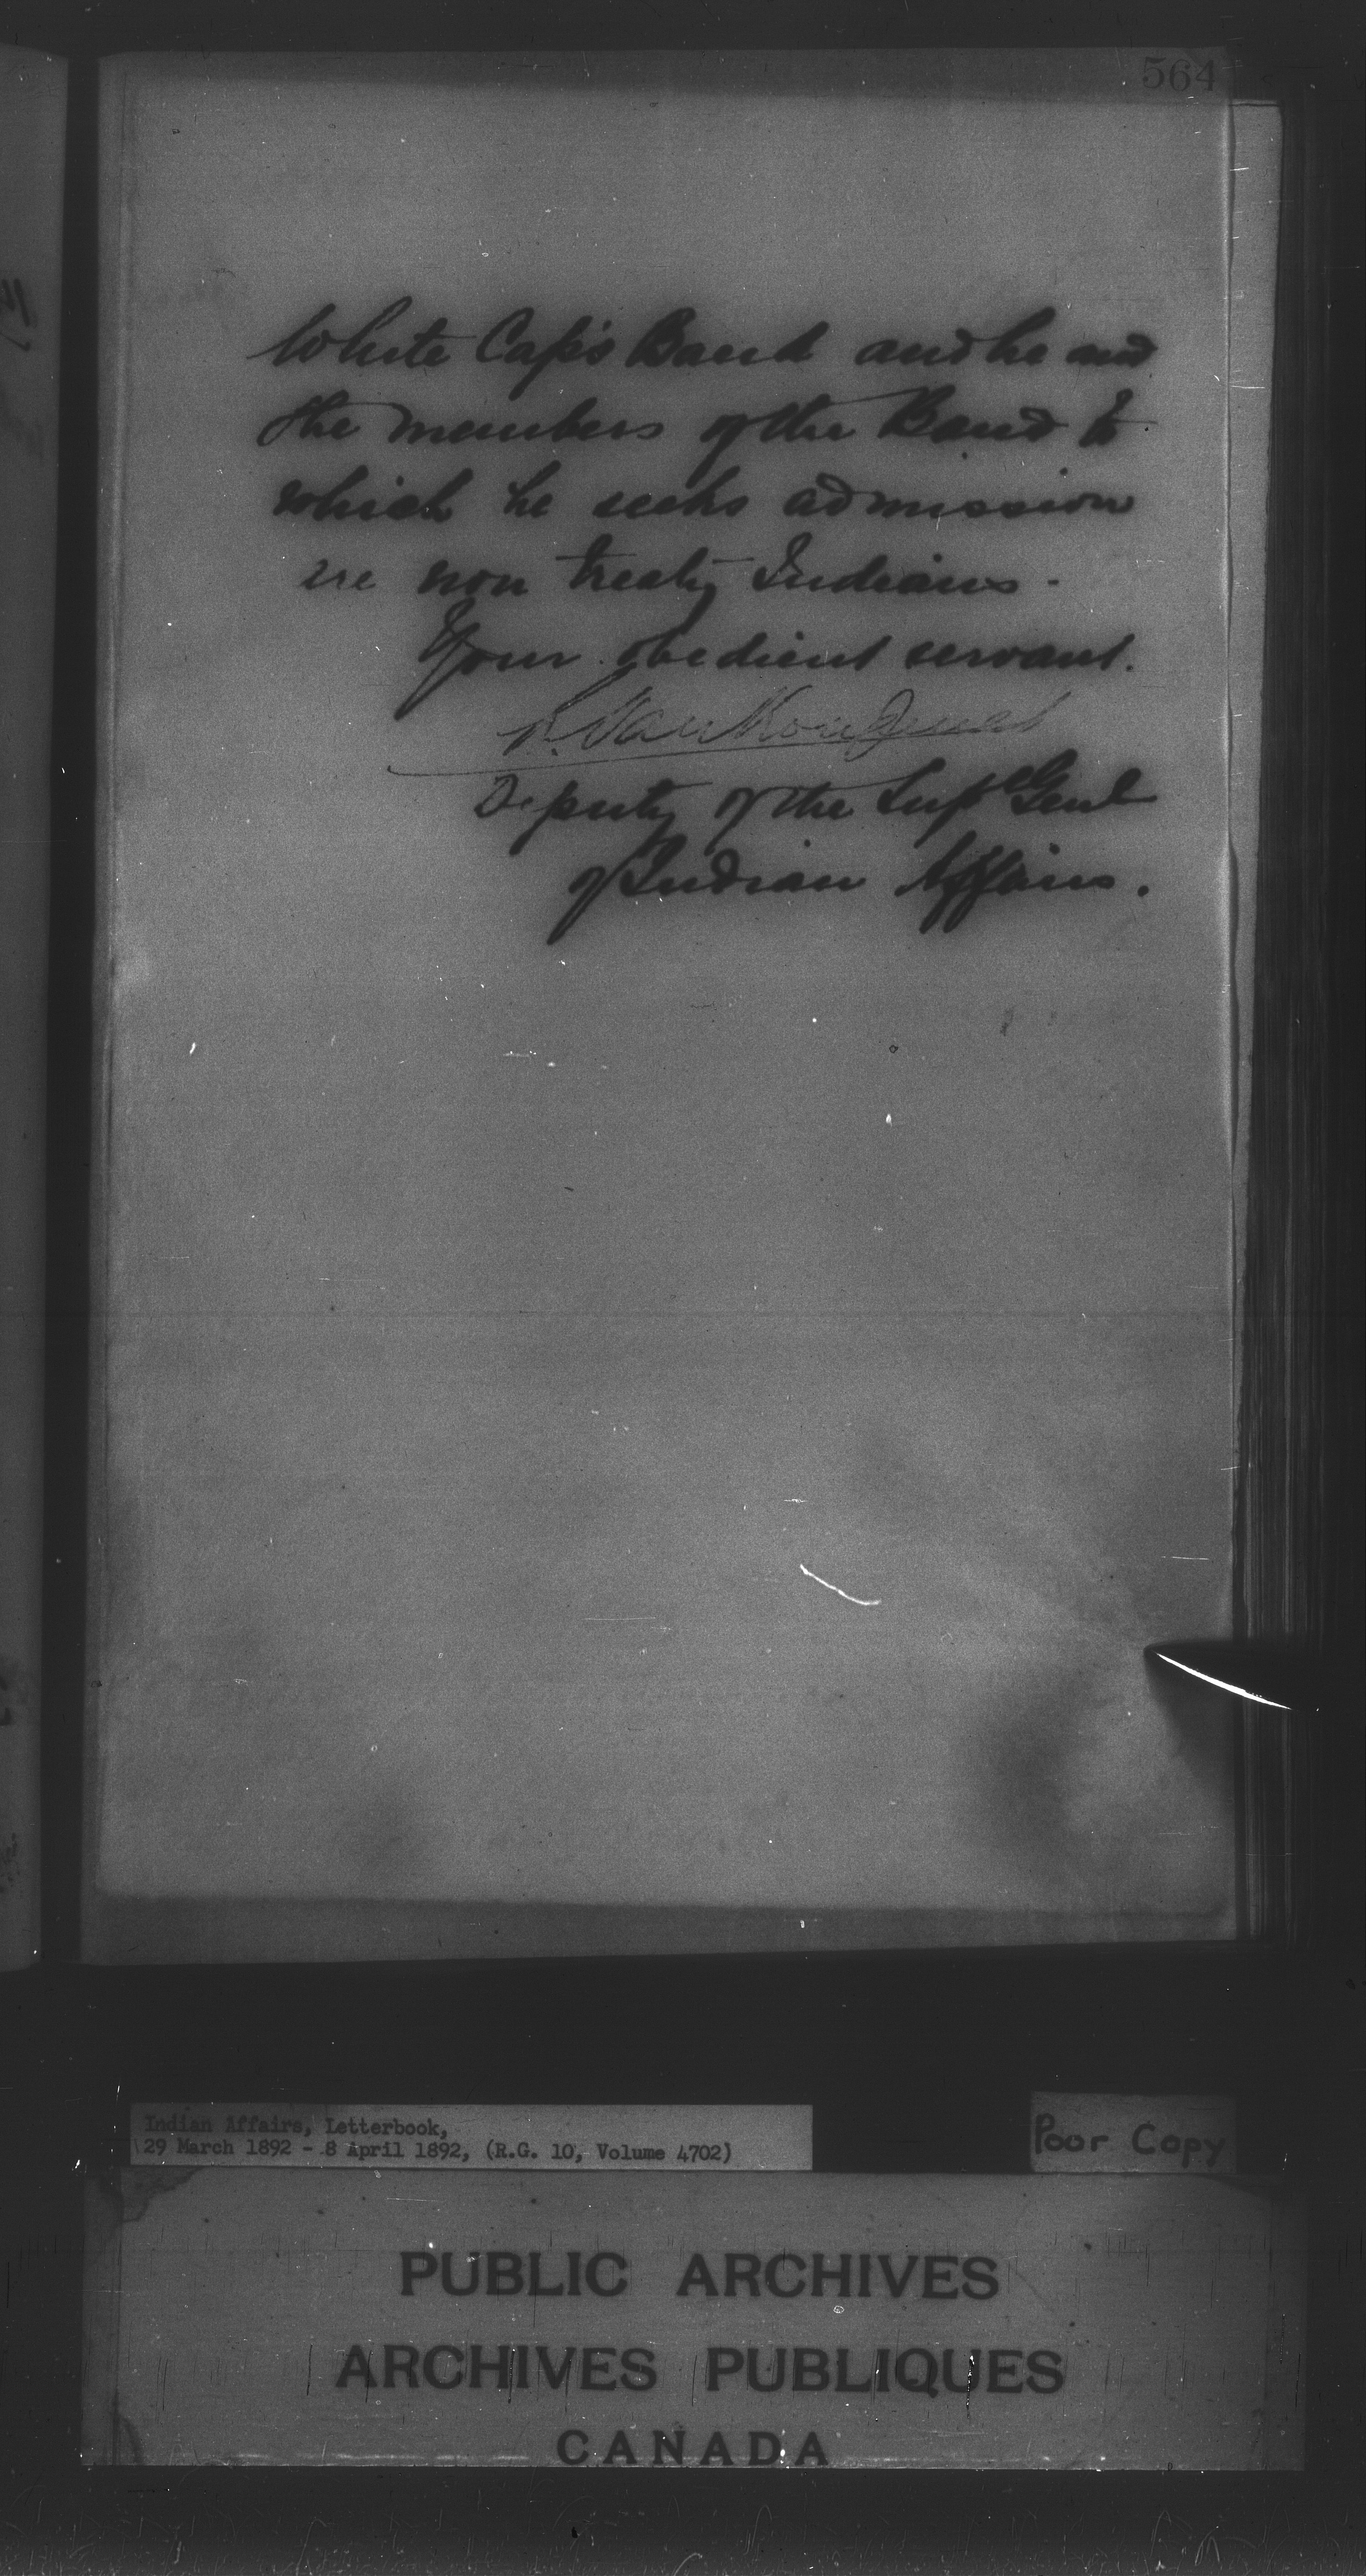 564
White Cap's Band and he and
the members of the Band to
which he seeks admission
are non treaty Indians.
Your obedient servant.
L. VanKoughnet
Deputy of the Supt Genl
of Indian Affairs.
Indian Affairs, Letterbook,
29 March 1892 - 8 April 1892, (R.G. 10, Volume 4702)
Poor Copy
PUBLIC ARCHIVES
ARCHIVES PUBLIQUES
CANADA